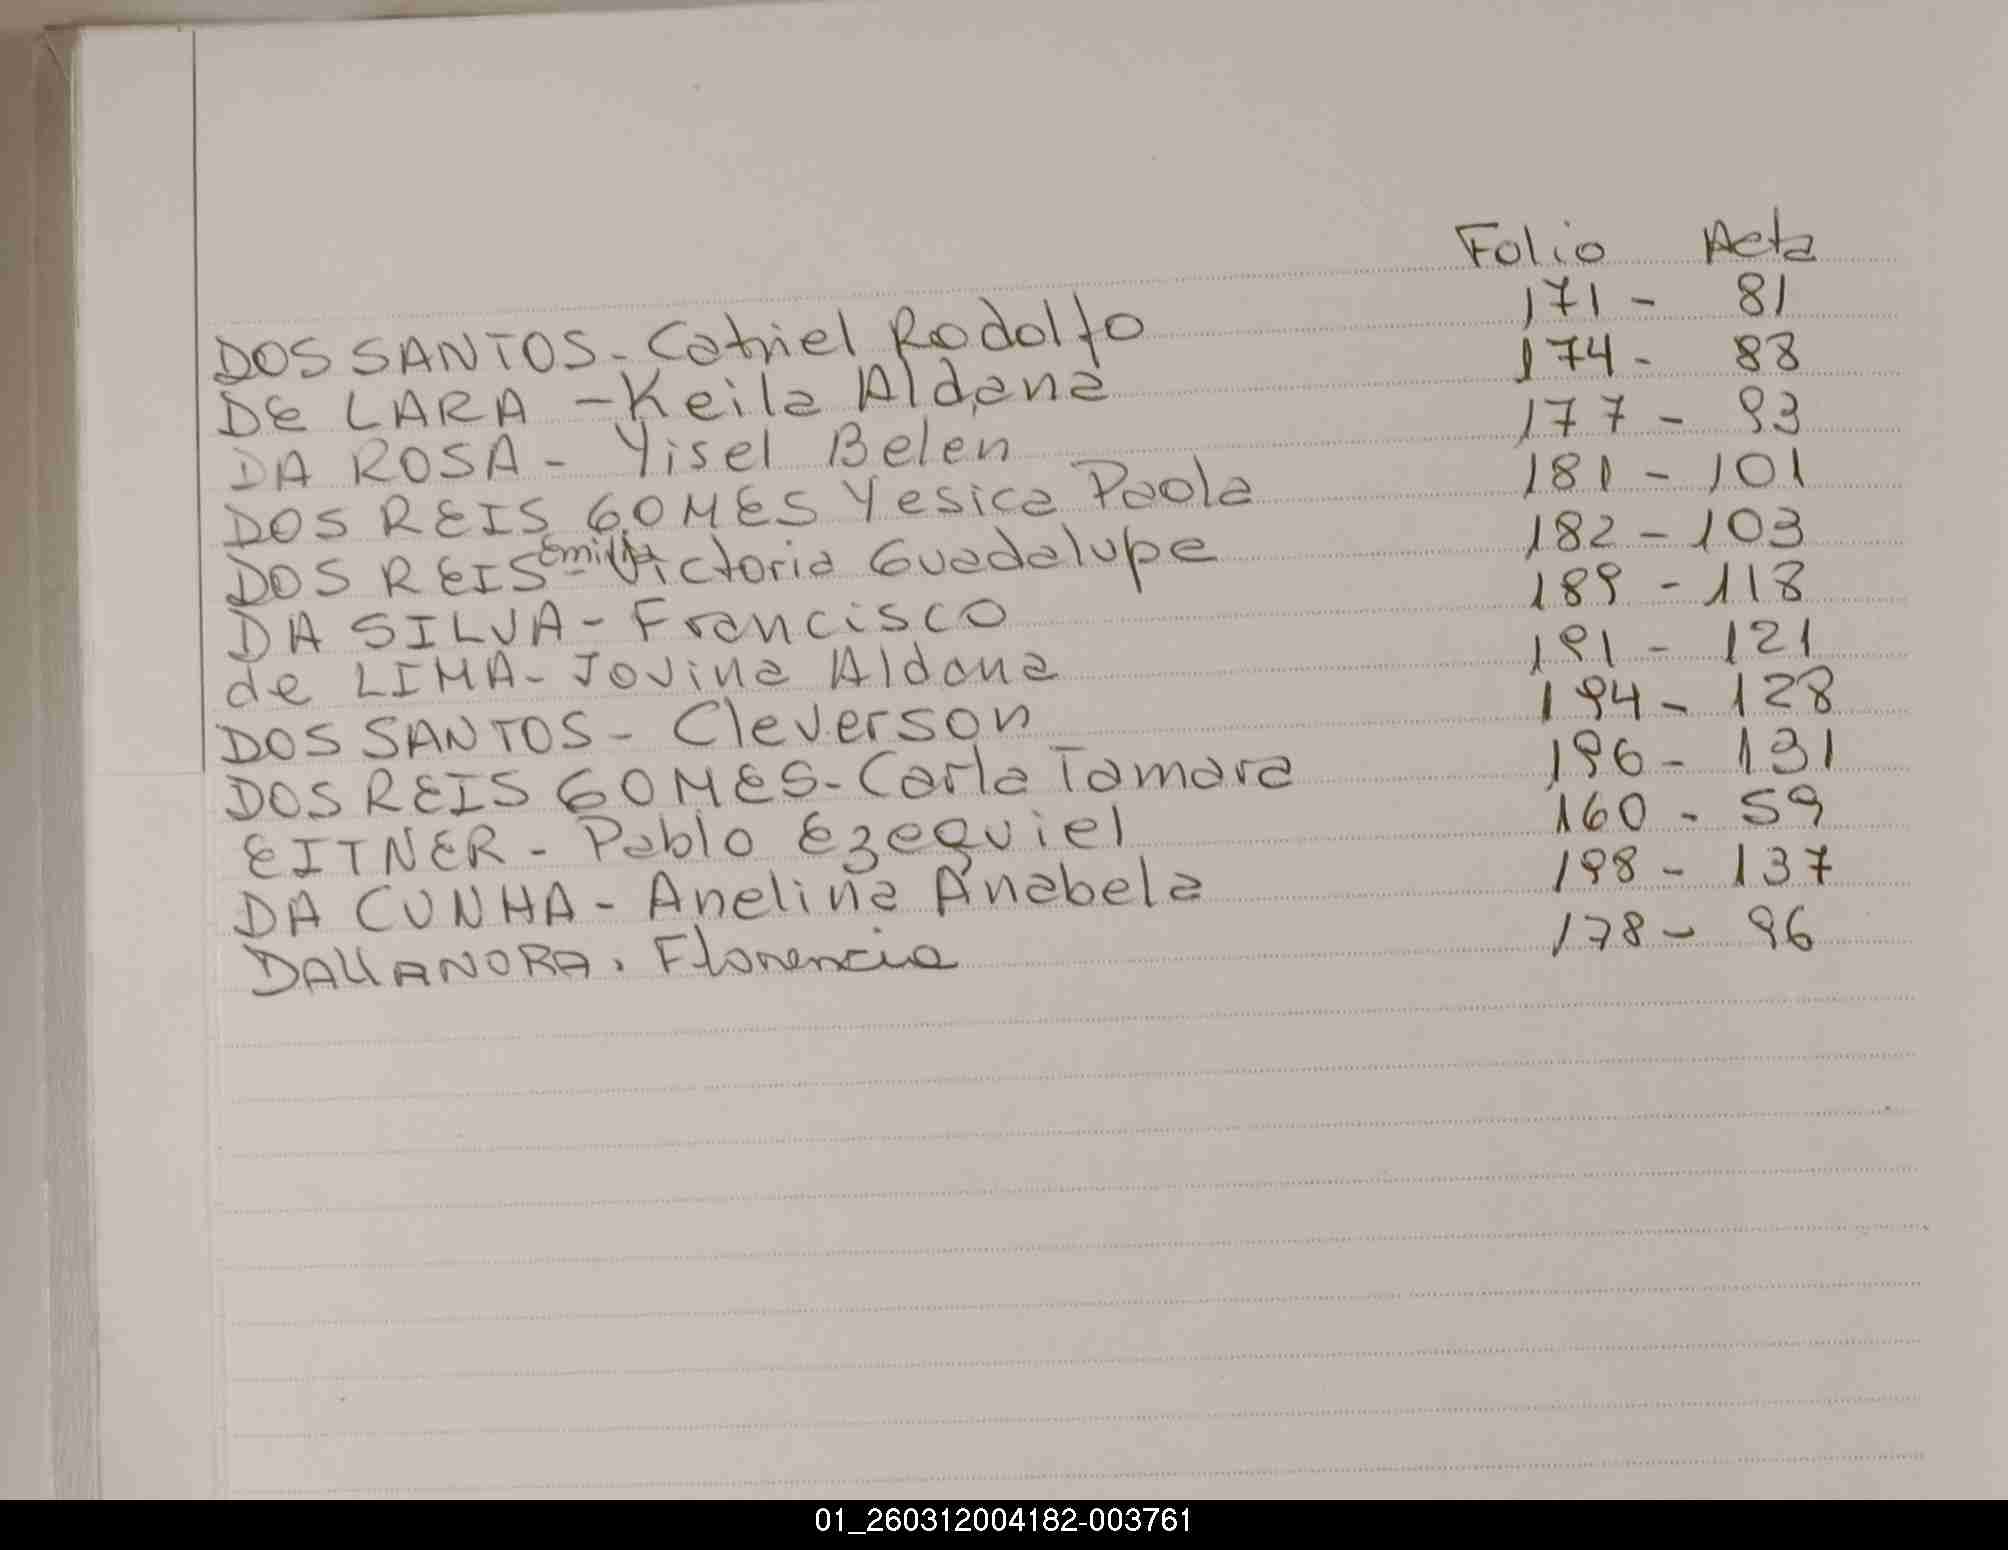 Folio - Acta
DOS SANTOS - Catriel Rodolfo 171 - 81
DE LARA - Keila Aldana 174 - 88
DA ROSA - Yisel Belen 177 - 93
DOS REIS GOMES Yesica Paola 181 - 101
DOS REIS - Emilia Victoria Guadalupe 182 - 103
DA SILVA - Francisco 189 - 118
de LIMA - Jovina Aldana 191 - 121
DOS SANTOS - Cleverson 194 - 128
DOS REIS GOMES - Carla Tamara 196 - 131
EITNER - Pablo Ezequiel 160 - 59
DA CUNHA - Anelina Anabela 198 - 137
DALLANORA. Florencia 178 - 96
01_260312004182-003761